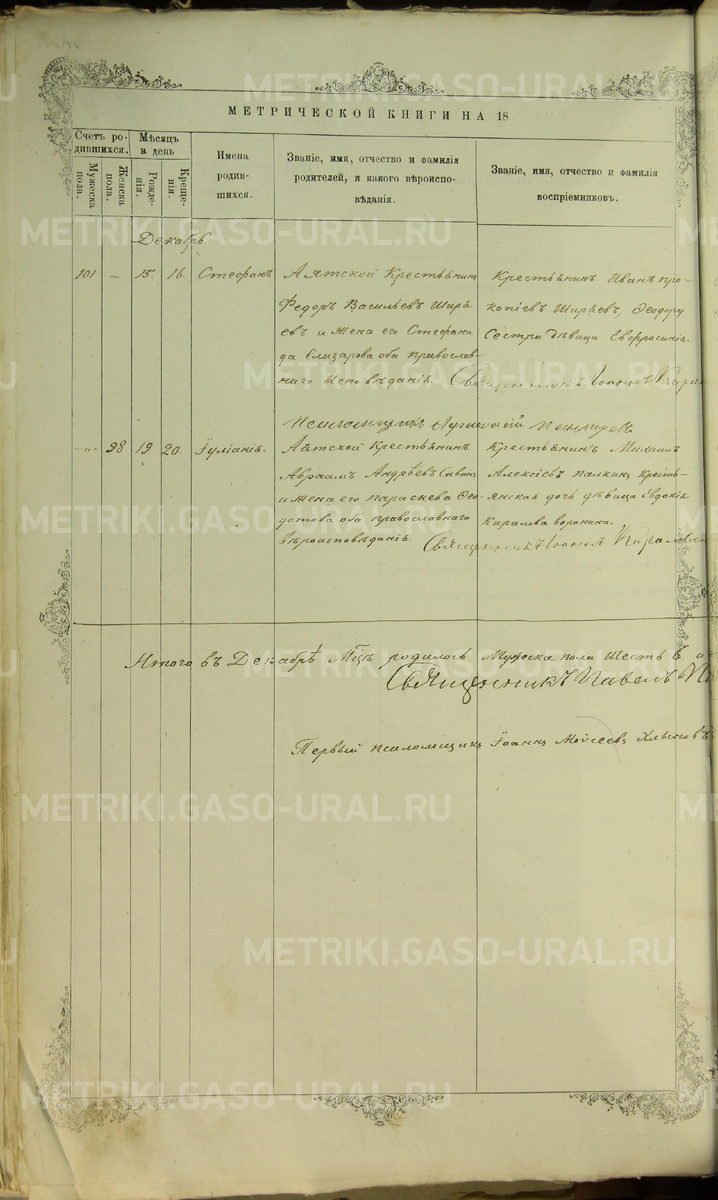 МЕТРИЧЕСКОЙ КНИГИ НА 18
Счетъ ро-
дившихся.
Мужеска
пола.
Женска
пола.
Мѣсяцъ
и день
Рожде-
нія.
Креще-
нія.
Имена
родив-
шихся.
Званіе, имя, отчество и фамилія
родителей, и какого вѣроиспо-
вѣданія.
Званіе, имя, отчество и фамилія
воспріемниковъ.
Декабрь.
101 – 15. 16. Стефанъ
Аятской Крестьянинъ
Федоръ Васильевъ Ширя
евъ и жена его Стефани
да Елизарова оба православ-
наго Исповѣданія.
Крестьянинъ Иванъ про-
копіевъ Ширяевъ, Феодору
Сестра дѣвица Евфросинія.
Священникъ Іоаннъ
Псаломщикъ
-"- 98 19 20. Іуліанія.
Аятской Крестьянинъ
Авраамъ Андрѣевъ
и жена его параскева Фео-
дотова оба православнаго
вѣроисповѣданія.
Крестьянинъ Михаилъ
Алексіевъ палкинъ кресть-
янская дочь дѣвица Евдокія
Кирилова
Священникъ Іоаннъ
Итого въ Декабрѣ Мцѣ родилось Мужеска пола Шесть
Священникъ Павелъ
Первый псаломщикъ Іоаннъ Моѵсеевъ
METRIKI.GASO-URAL.RU